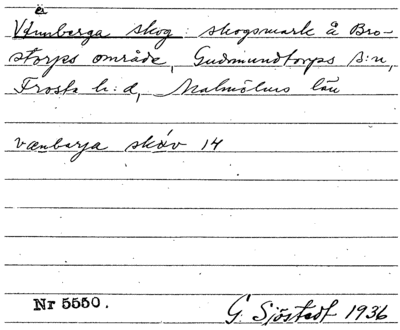 Vänberga skog: skogsmark å Bro-
storps område, Gudmundtorps s:n,
Frosta h:d, Malmöhus län
vænbarja skáv 14
Nr 5550.
G. Sjöstedt 1936